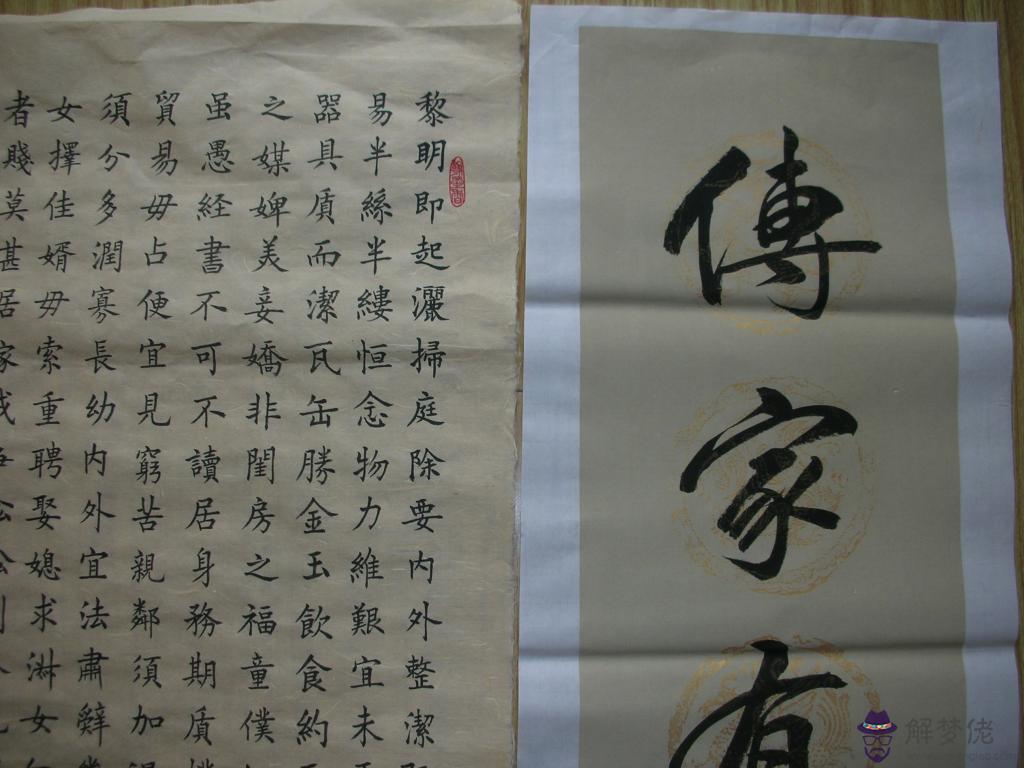 傳家有
黎明即起灑掃庭除要内外整潔
易半絲半縷恒念物力維艱宜未
器具質而潔瓦缶勝金玉飲食約
之媒婢美妾嬌非閨房之福童僕
虽愚経書不可不讀居身務期質
貿易毋占便宜見窮苦親鄰須加
須分多潤寡長幼内外宜法肅辭
女擇佳婿毋索重聘娶媳求淑女
者賤莫甚居家戒
解梦佬